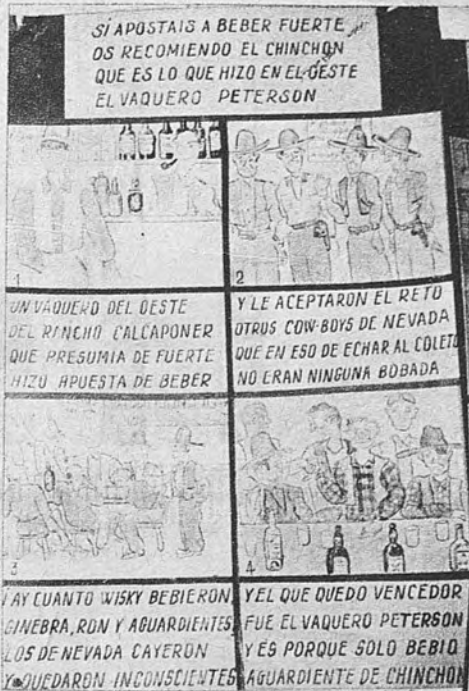 SÍ APOSTAIS A BEBER FUERTE
OS RECOMIENDO EL CHINCHON
QUE ES LO QUE HIZO EN EL OESTE
EL VAQUERO PETERSON
1
2
UN VAQUERO DEL OESTE
DEL RANCHO CALCAPONER
QUE PRESUMIA DE FUERTE
HIZO APUESTA DE BEBER
Y LE ACEPTARON EL RETO
OTROS COW-BOYS DE NEVADA
QUE EN ESO DE ECHAR AL COLETO
NO ERAN NINGUNA BOBADA
3
4
¡AY CUANTO WISKY BEBIERON
GINEBRA, RON Y AGUARDIENTES
LOS DE NEVADA CAYERON
Y QUEDARON INCONSCIENTES
Y EL QUE QUEDO VENCEDOR
FUE EL VAQUERO PETERSON
Y ES PORQUE SOLO BEBIO
AGUARDIENTE DE CHINCHON